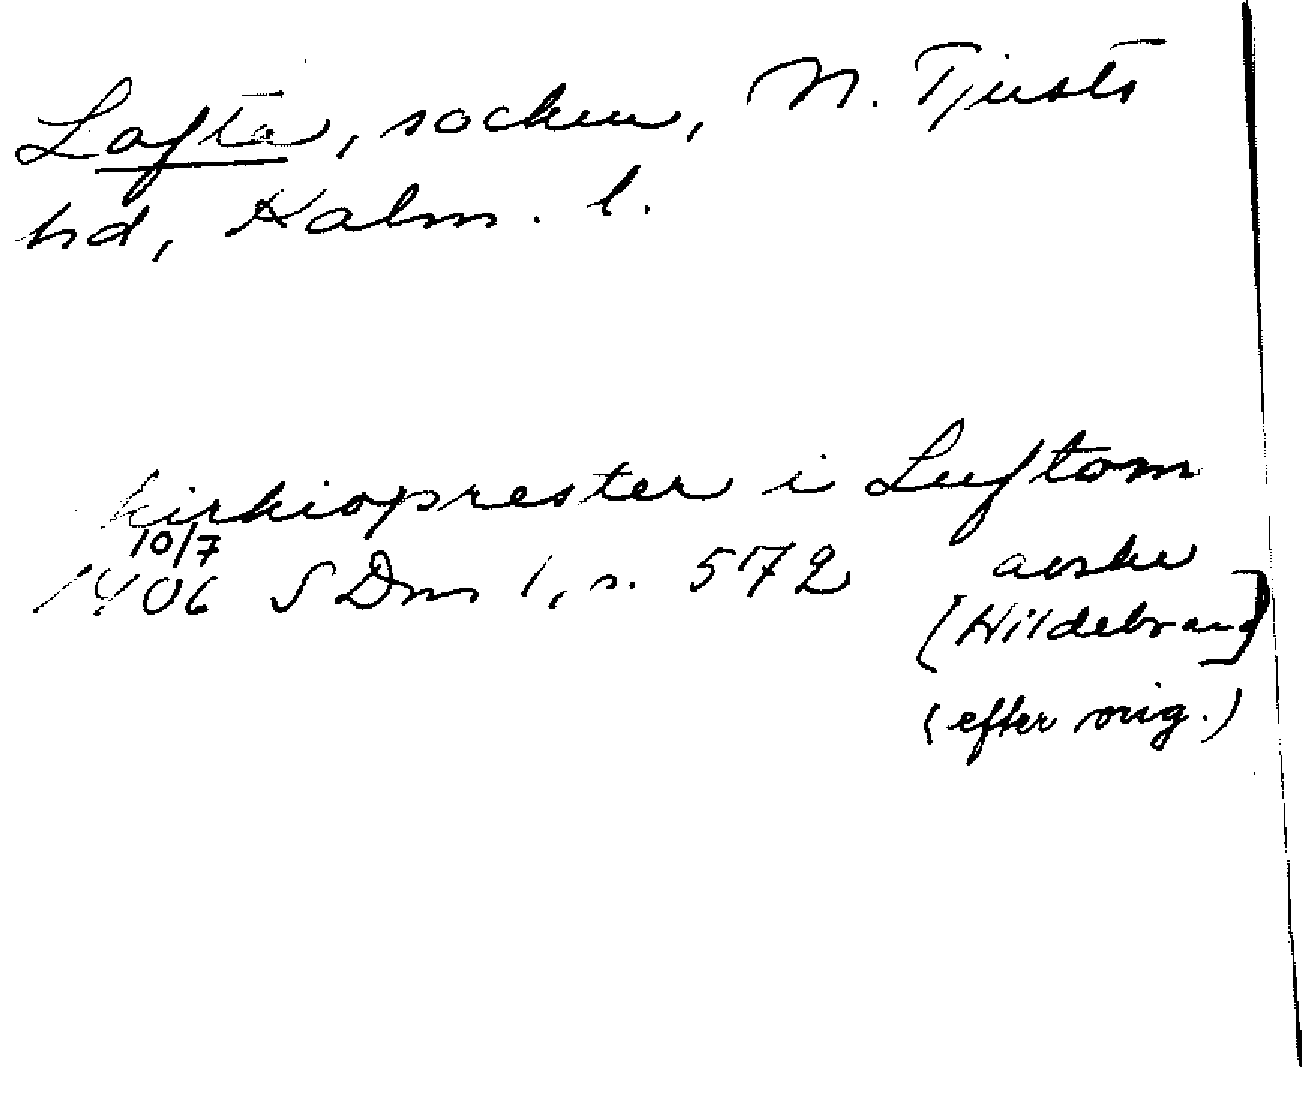 Lofta, socken, N. Tjusts
hd, Kalm. l.
kirkioprester i Luftom
10/7
1406 SDns 1, s. 572 avskr
[Hildebrand]
(efter orig.)